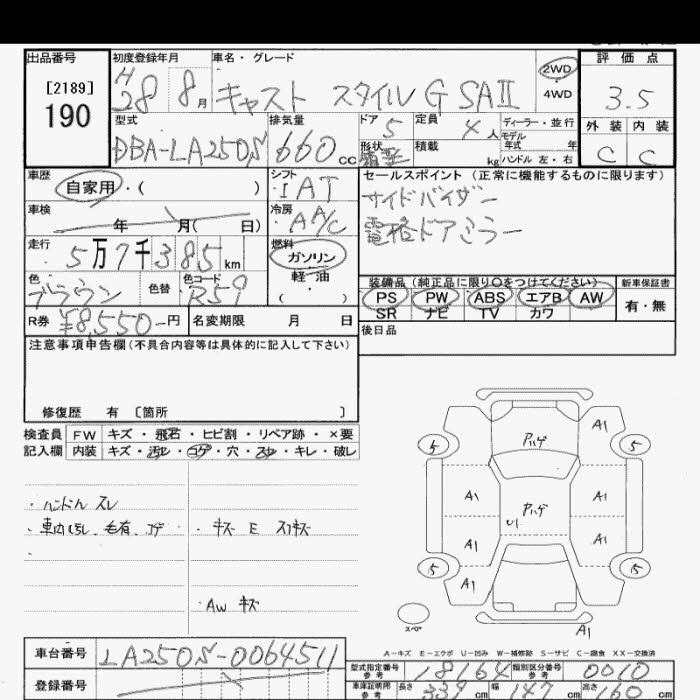 出品番号 初度登録年月 車名・グレード 評価点
[2189] H 2WD
190 28 8月 キャスト スタイル G SAⅡ ・ 3.5
4WD
型式 排気量 ドア 定員 ディーラー・並行 外装 内装
DBA-LA250S 660cc 5 4人 モデル
年式 年 C C
形状 積載 kg ハンドル 左・右
車歴 シフト セールスポイント (正常に機能するものに限ります)
自家用・( ) ・IAT サイドバイザー
車検 冷房 電格ドアミラー
年 月( 日) AA/C
走行 燃料
5万7千385km ガソリン
・
軽・油
( )
色 色替 色コード 装備品(純正品に限り○をつけてください) 新車保証書
ブラウン R59 PS PW ABS エアB AW 有・無
SR ナビ TV カワ
R券 ¥8,550-円 名変期限 月 日 後日品
注意事項申告欄(不具合内容等は具体的に記入して下さい)
修復歴 有 〔箇所 〕
検査員 FW キズ・飛石・ヒビ割・リペア跡・×要
記入欄 内装 キズ・汚レ・コゲ・穴・スレ・キレ・破レ
・ハンドル スレ
・車内 毛有、コゲ ・キズ E スリキズ
・AW キズ
A1
アハゲ
5 5
A1 A1
アハゲ
U1
A1 A1
5 5
A1
スペア
A1
A-キズ E-エクボ U-凹み W-補修跡 S-サビ C-腐食 XX-交換済
車台番号 LA250S-0064511
型式指定番号 参考 18164 類別区分番号 参考 0010
登録番号
車庫証明用 参考 長さ 339cm 幅 147cm 高さ 160cm